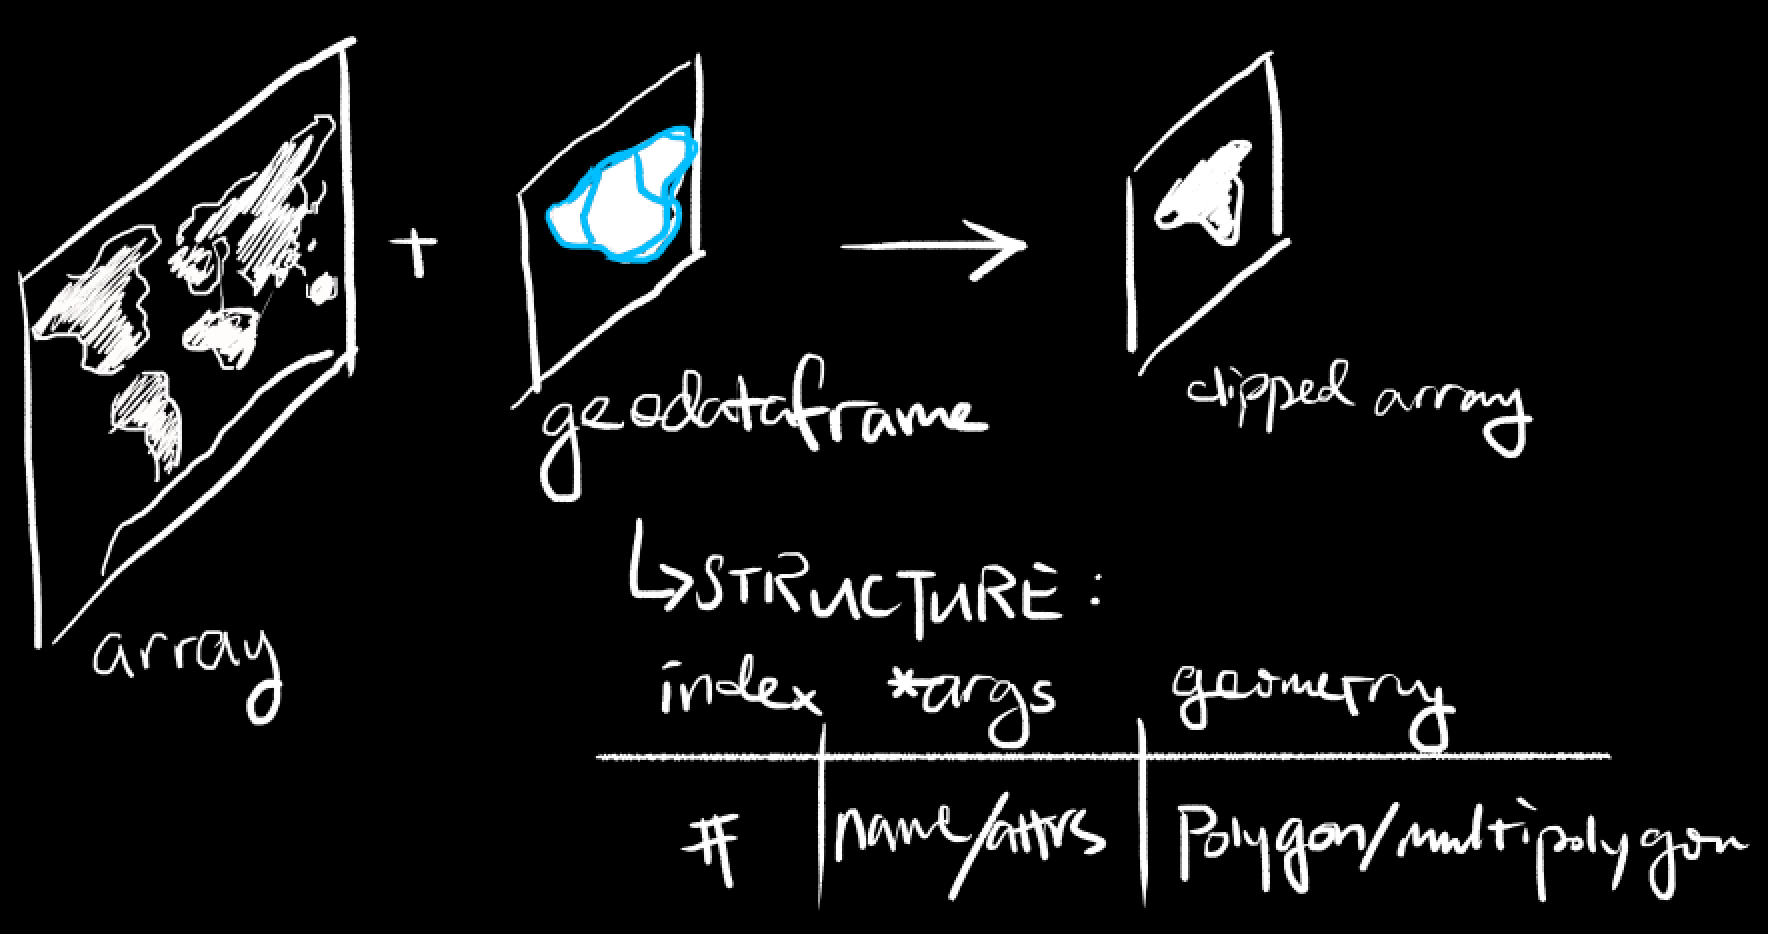 +
geodataframe
clipped array
array
↳STRUCTURE:
index *args geometry
# name/attrs Polygon/multipolygon